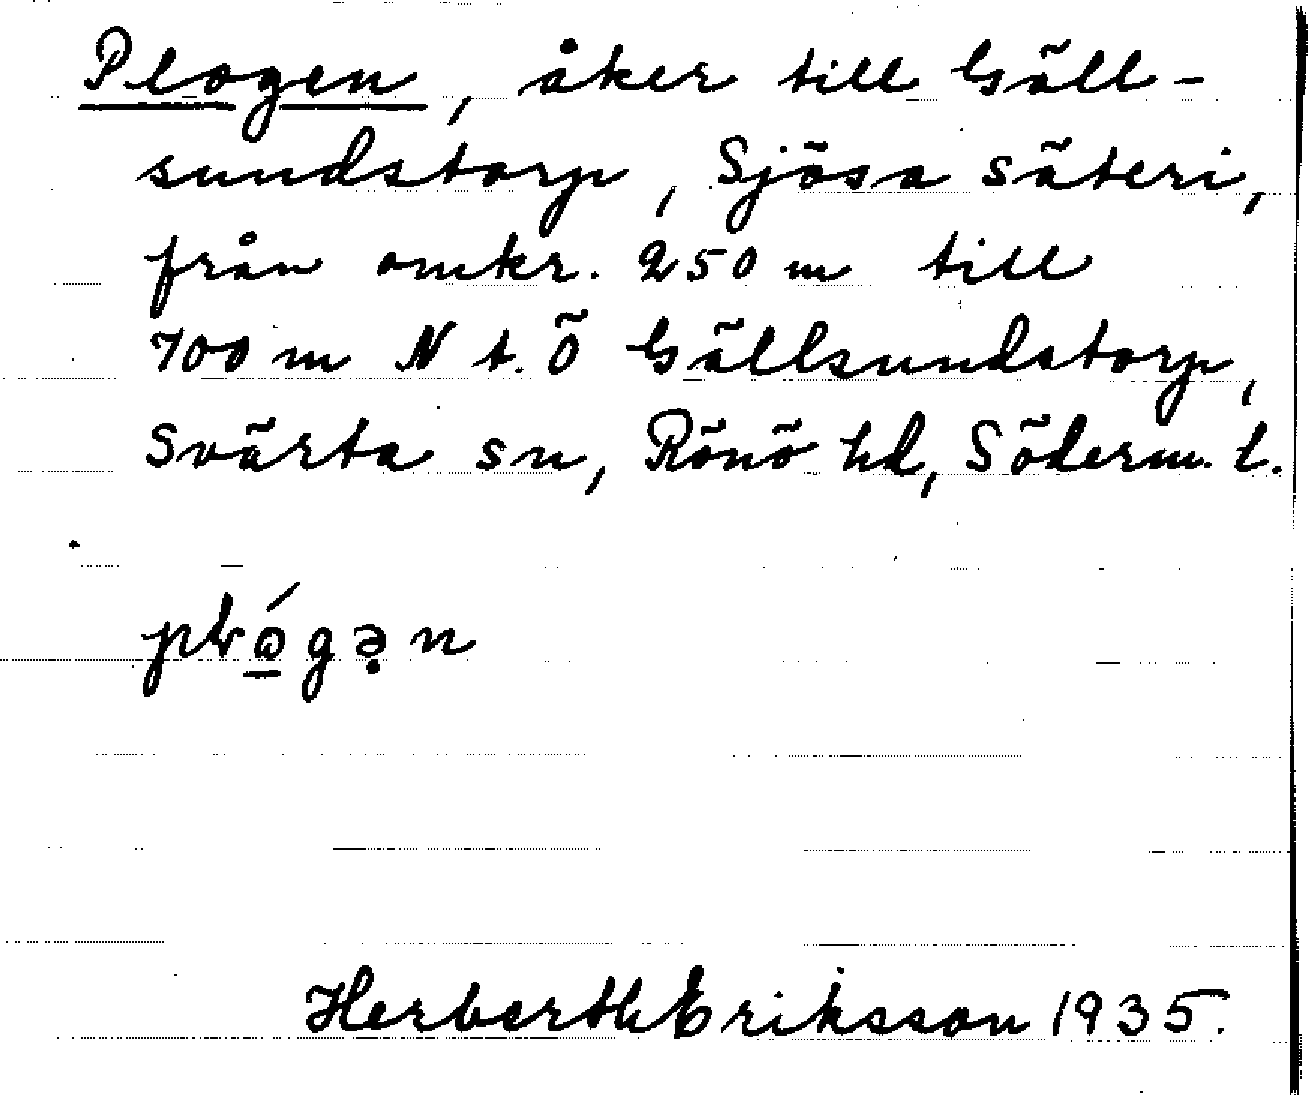 Plogen, åker till Gäll-
sundstorp, Sjösa säteri,
från omkr. 250 m till
700 m N t. Ö Gällsundstorp,
Svärta sn, Rönö hd, Söderm. l.
Herbert Eriksson 1935.